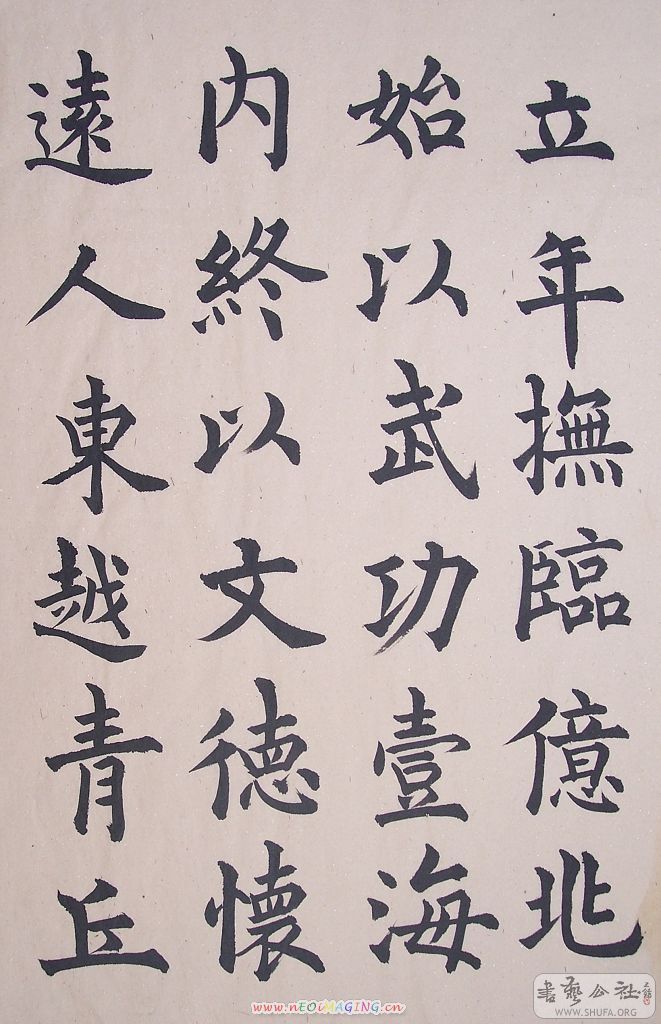 立年撫臨億兆
始以武功壹海
內終以文德懷
遠人東越青丘
www.nEOiMAGiNG.cn
書藝公社
WWW.SHUFA.ORG